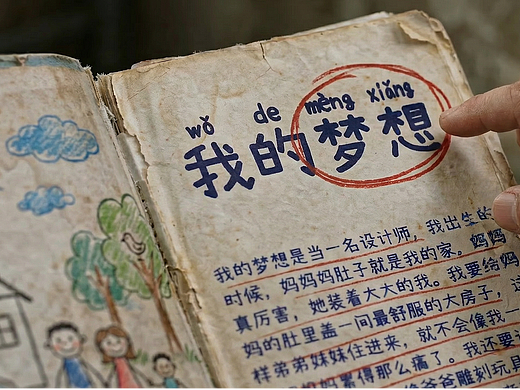 wǒ de mèng xiǎng
我的梦想
我的梦想是当一名设计师，我出生的
时候，妈妈妈肚子就是我的家。妈妈
真厉害，她装着大大的我。我要给妈
妈的肚里盖一间最舒服的大房子，这
样弟弟妹妹住进来，就不会像我一
妈妈觉得那么痛了。我还要
爸雕刻玩具